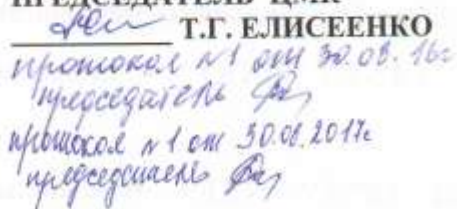 ПРЕДСЕДАТЕЛЬ ЦМК
Т.Г. ЕЛИСЕЕНКО
протокол №1 от 30.08.16г
председатель
протокол №1 от 30.08.2017г
председатель